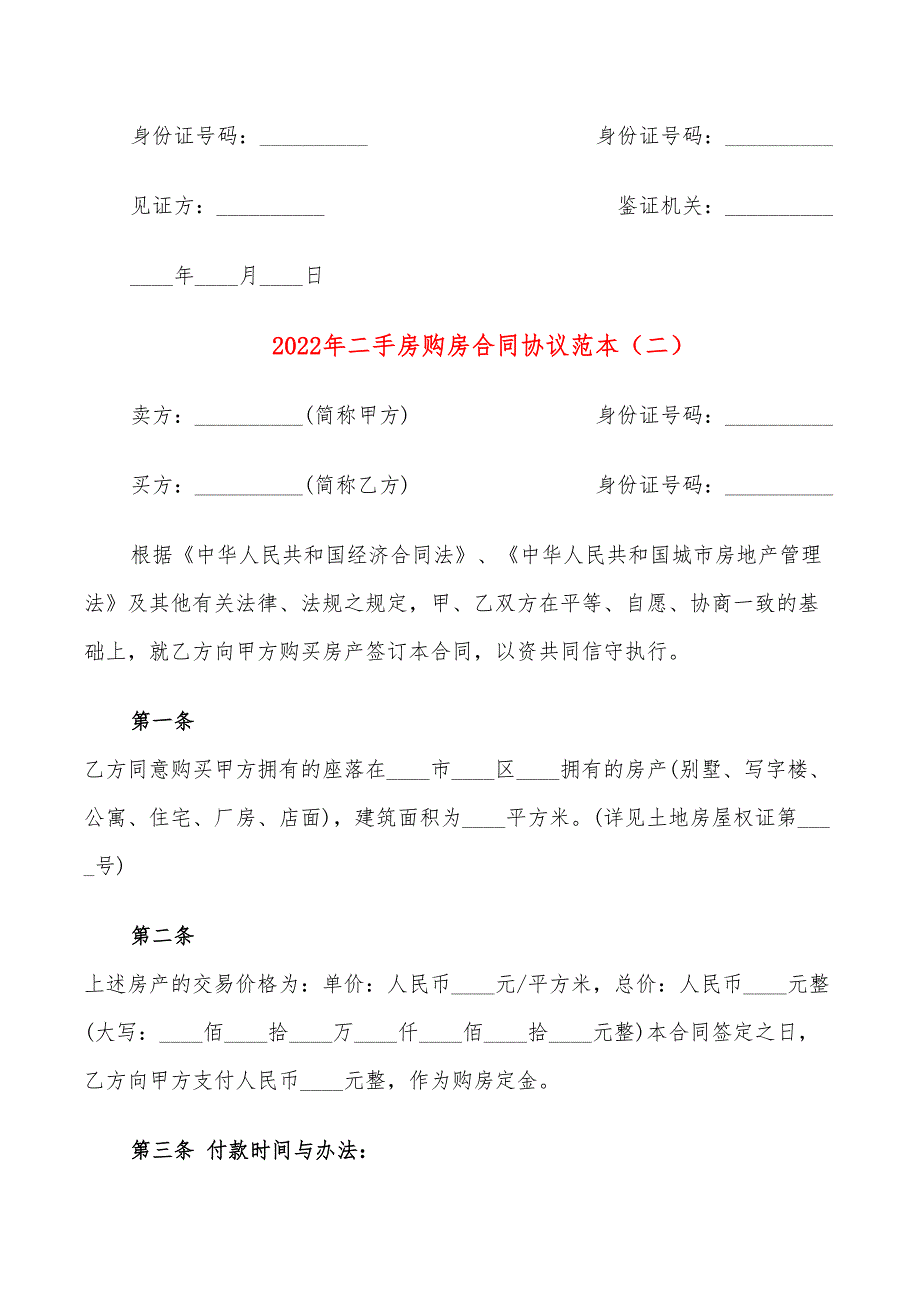 身份证号码：__________ 身份证号码：__________
见证方：__________ 鉴证机关：__________
____年____月____日
2022年二手房购房合同协议范本（二）
卖方：__________(简称甲方) 身份证号码：__________
买方：__________(简称乙方) 身份证号码：__________
根据《中华人民共和国经济合同法》、《中华人民共和国城市房地产管理
法》及其他有关法律、法规之规定，甲、乙双方在平等、自愿、协商一致的基
础上，就乙方向甲方购买房产签订本合同，以资共同信守执行。
第一条
乙方同意购买甲方拥有的座落在____市____区____拥有的房产(别墅、写字楼、
公寓、住宅、厂房、店面)，建筑面积为____平方米。(详见土地房屋权证第___
_号)
第二条
上述房产的交易价格为：单价：人民币____元/平方米，总价：人民币____元整
(大写：____佰____拾____万____仟____佰____拾____元整)本合同签定之日，
乙方向甲方支付人民币____元整，作为购房定金。
第三条 付款时间与办法：